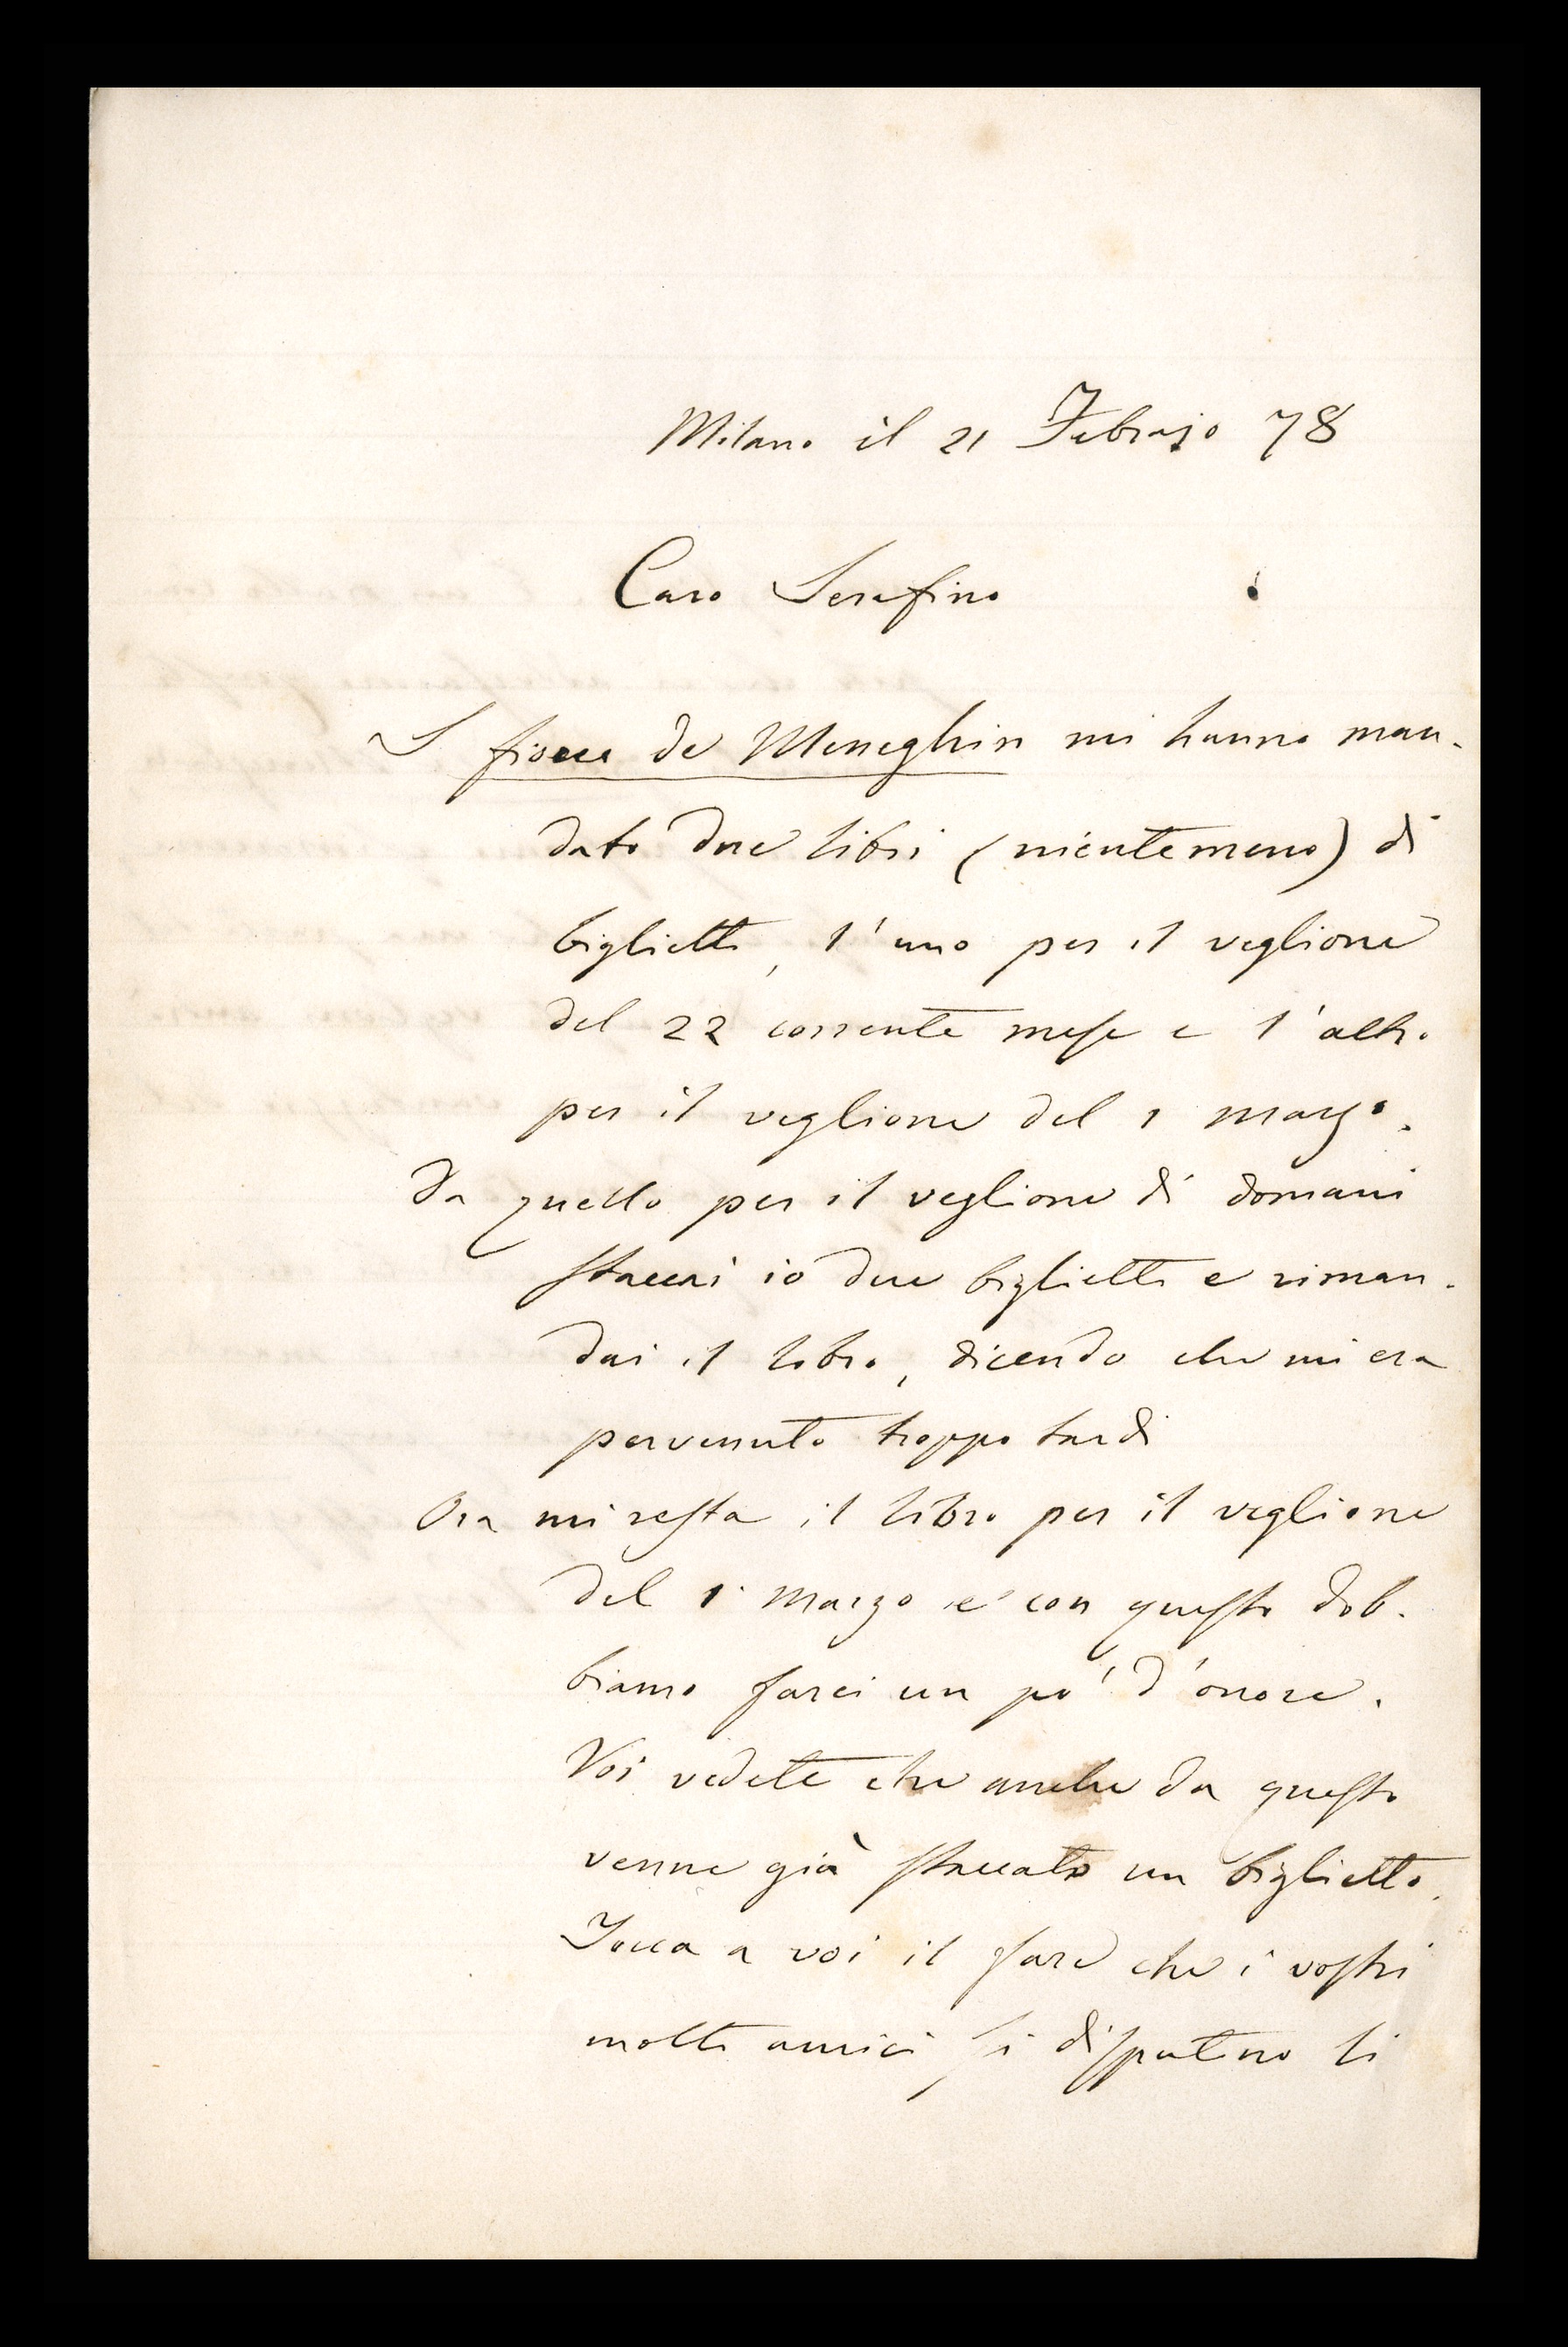 Milano il 21 Febrajo 78
Caro Serafino
I fioeu de Meneghin mi hanno man-
dato due libri (nientemeno) di
biglietti, l'uno per il veglione
del 22 corrente mese e l'altro
per il veglione del 1 marzo.
Da quello per il veglione di domani
staccai io due biglietti e riman-
dai il libro, dicendo che mi era
pervenuto troppo tardi
Ora mi resta il libro per il veglione
del 1° marzo e con questo dob-
biamo farci un po' d'onore.
Voi vedete che anche da questo
venne già staccato un biglietto.
Tocca a voi il fare che i vostri
molti amici si disputino li